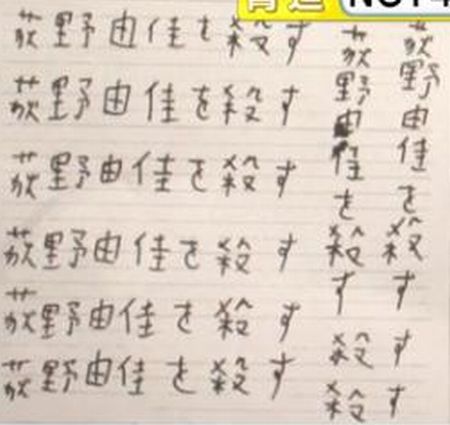 NGT4
荻野由佳を殺す
荻野由佳を殺す
荻野由佳を殺す
荻野由佳を殺す
荻野由佳を殺す
荻野由佳を殺す
荻野由佳を殺す
荻野由佳を殺す
殺す
殺す